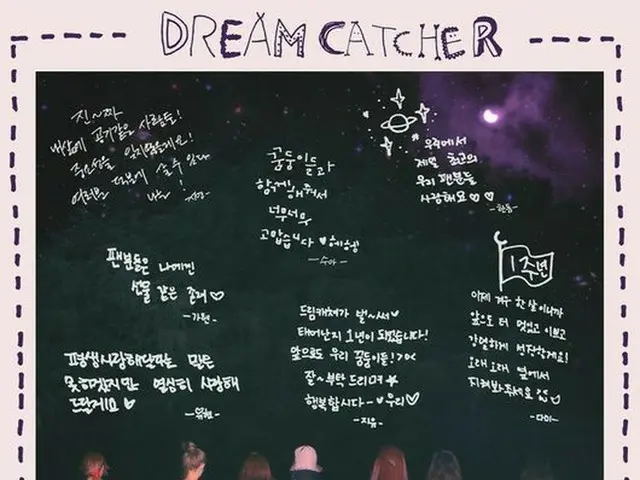 DREAM CATCHER
진~짜
내밥에 공기같은 사람들!
소중함을 잊지않을게요!
여러분 덕분에 숨쉬 있다
나는 !
-시연-
꿈둥이들과
함께해줘서
너무너무
고맙습니다 ♥헤헹
-수아-
우주에서
제일 최고의
우리 팬분들
사랑해요♡♡
-한동-
팬분들은 나에게
선물 같은 존재♡
-가현-
1주년
이제 겨우 한 살이니까
앞으로 더 멋있고 이쁘고
강렬하게 성장할게요!
오래오래 옆에서
지켜봐주세요
-다미-
드림캐쳐가 벌~써
태어난지 1년이 되었습니다!
앞으로도 우리 꿈둥이들!>0<
잘~부탁드리며★
행복합시다-♥우리♡
-지유-
평생사랑해달라는 말은
못하겠지만 열심히 사랑해
드릴게요♡
-유현-